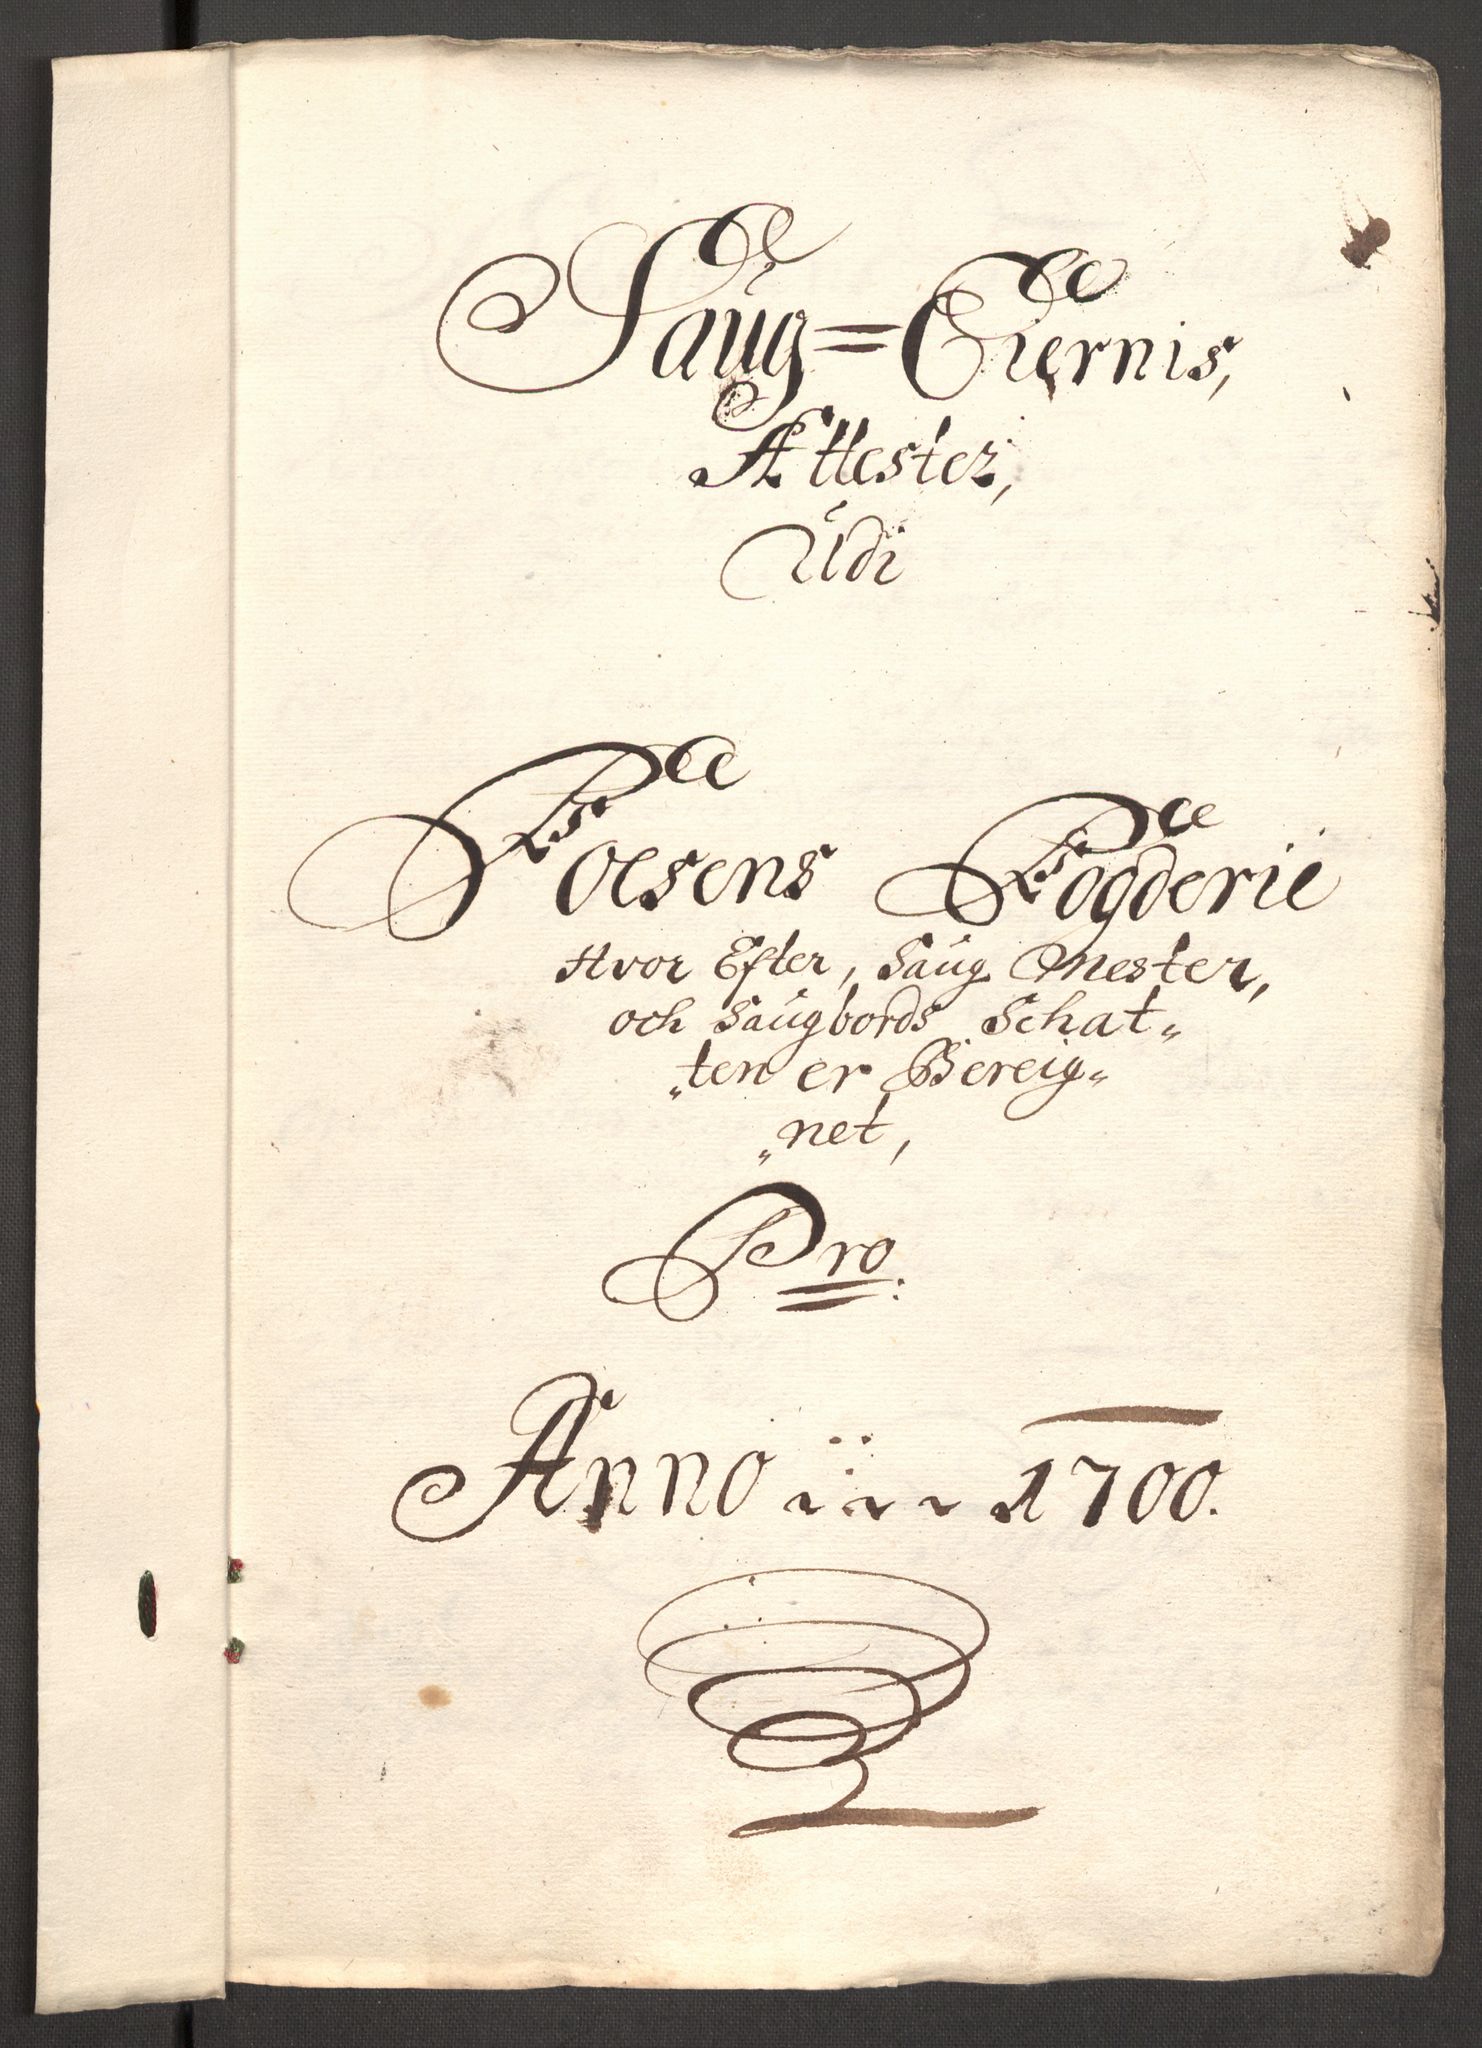 Saug=Eiernis,
Attester,
Udi
Foesens Fogderie
Hvor Efter, Saug Mester,
och Saugbords Schat„
„ten er Bereig„
„net,
Pro:
Anno 1700.